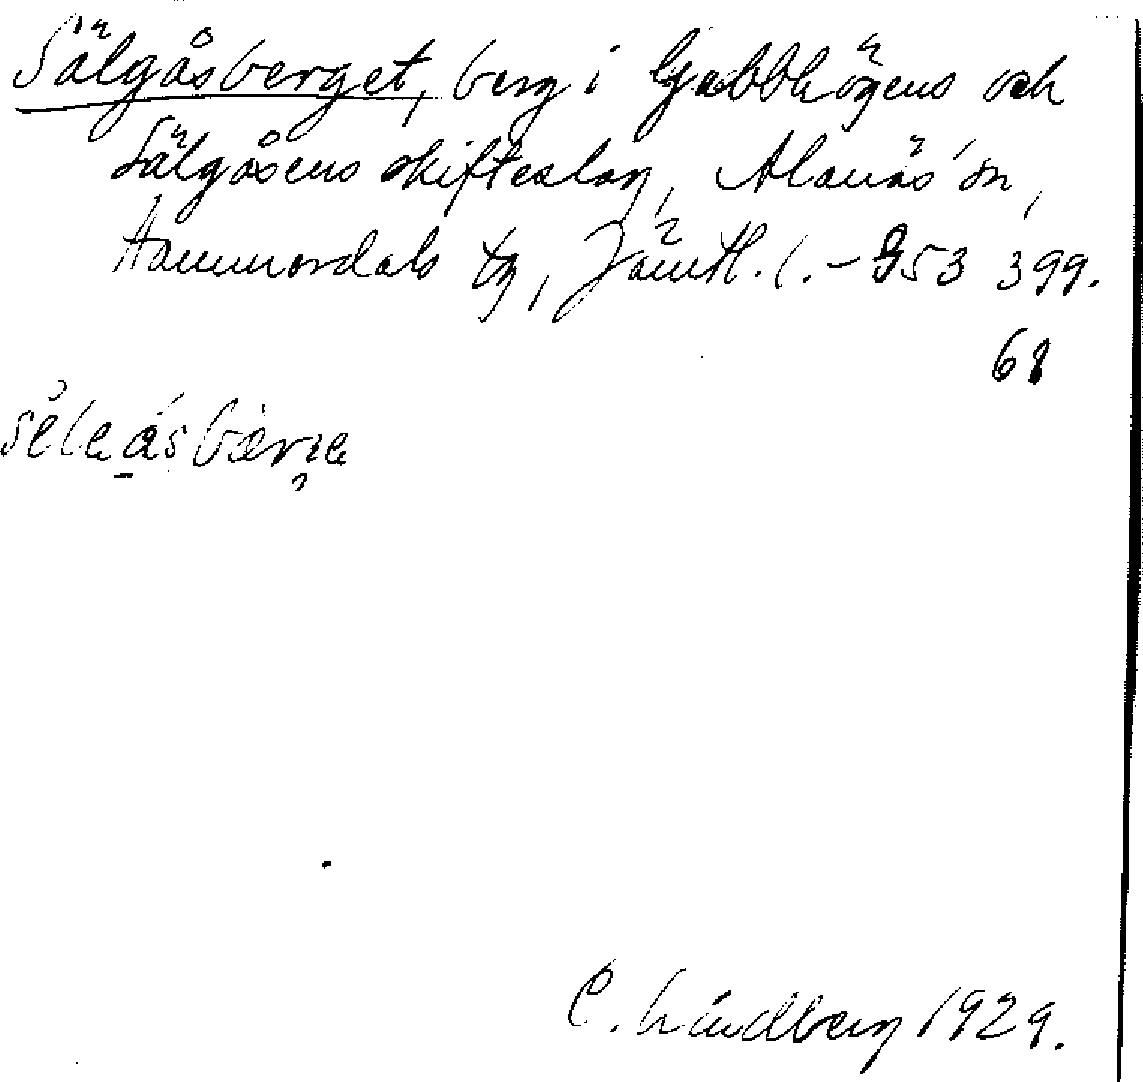 Sälgåsberget, berg i Gubbhögens och
Sälgåsens skifteslag, Alanäs sn,
Hammerdals tg, Jämtl. l. – 953 399.
61
C. Lindberg 1929.